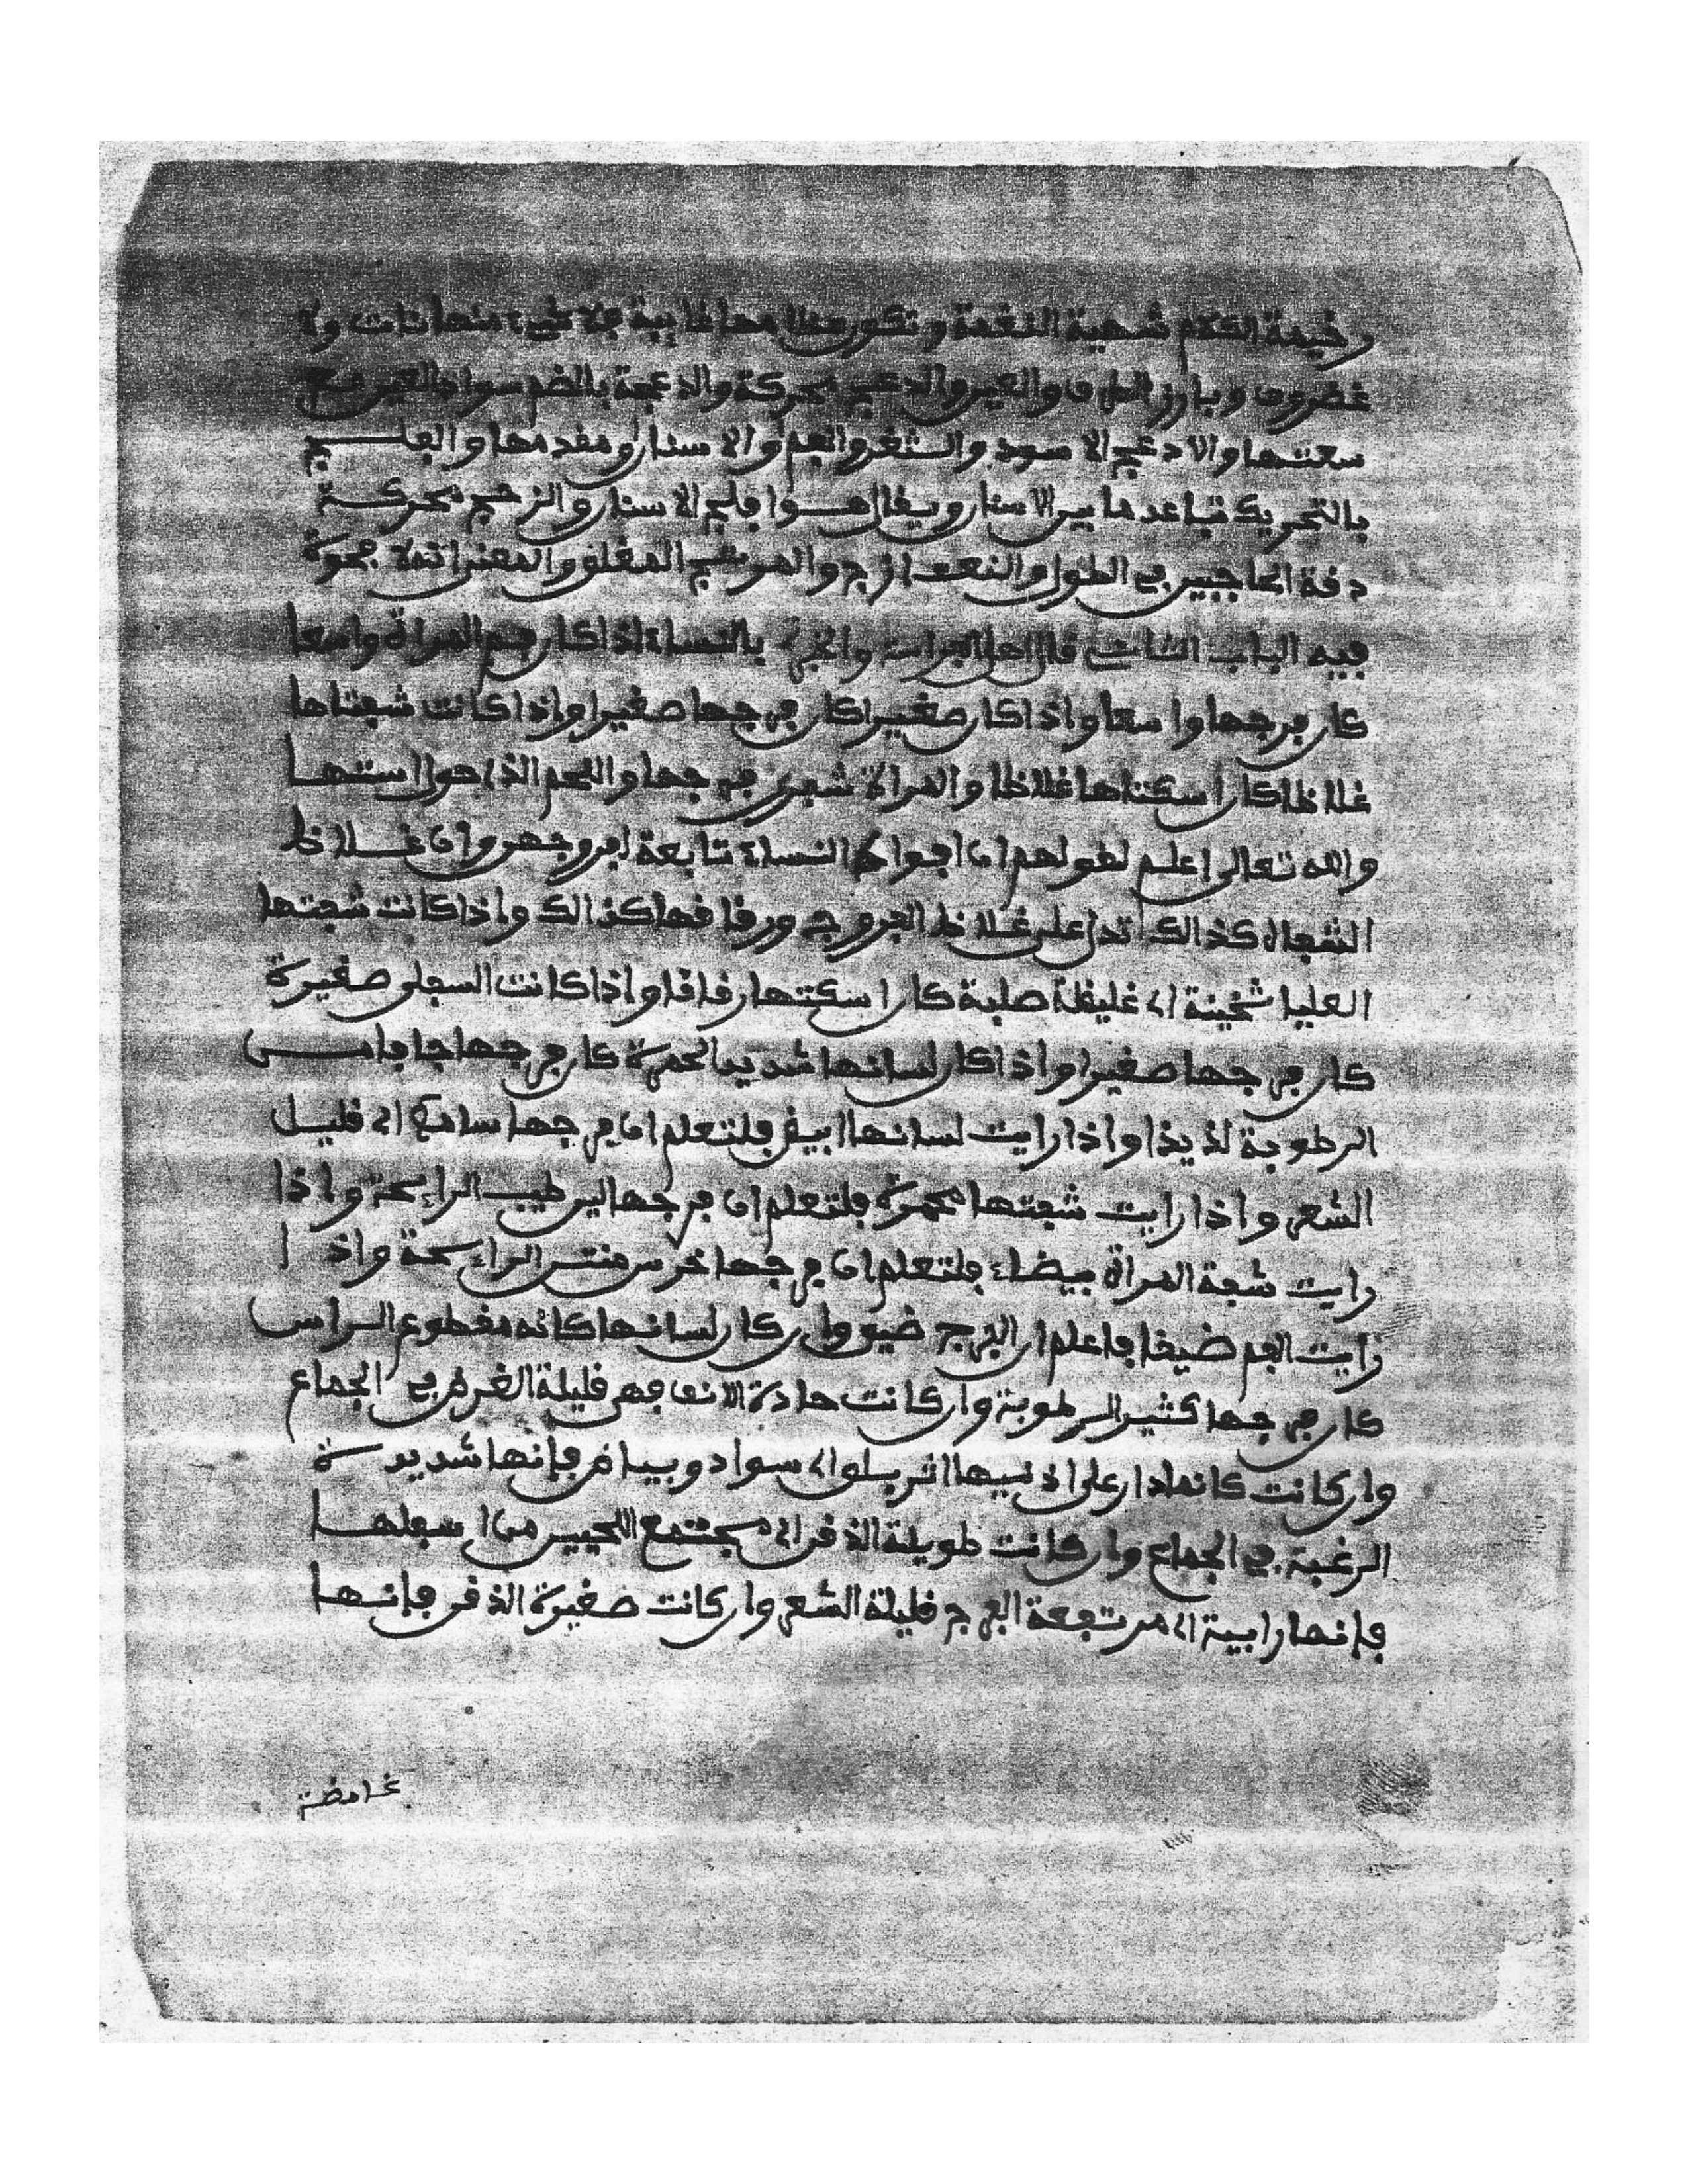 رخيمة الكلام شهية النغمة وتكون عظامها غايبة فلا شيء منها نات ولا
غضروف وبارز الطرف والعين والدعج محركة والدعجة بالضم سواد العين مع
سعتها والادعج الاسود والثغر والفم او الاسنان او مقدمها والفلج
بالتحريك تباعد ما بين الاسنان ويقال هو افلج الاسنان والزجج محركة
دقة الحاجبين في الطول والنعت ازج والمرتج المغلق والمعنى انه لا فجوة
فيه الباب الثاني قال اهل الفراسة والخبرة بالنساء اذا كان فم المراة واسعا
كان فرجها واسعا واذا كان صغيرا كان فرجها صغيرا واذا كانت شفتاها
غلاظا كان اسكتاها غلاظا والمراة شفرى فرجها واللحم الذي حول استها
والله تعالى اعلم لقولهم ان افواه النساء تابعة لفروجهن وان غلاظ
الشفاه كذالك تدل على غلاظ الفروج ورقاقها كذالك واذا كانت شفتها
العليا ثخينة اي غليظة صلبة كان اسكتها رقاقا واذا كانت السفلى صغيرة
كان فرجها صغيرا واذا كان لسانها شديد الحمرة كان فرجها جافا من
الرطوبة لذيذا واذا رايت لسانها ابيض فلتعلم ان فرجها سامح اي قليل
الشعر واذا رايت شفتها محمرة فلتعلم ان فرجها لين طيب الرايحة واذا
رايت شفة المراة بيضاء فلتعلم ان فرجها خرس منتن الراءيحة واذا
رايت الفم ضيقا فاعلم ان الفرج ضيق وان كان لسانها كانه مقطوع الراس
كان فرجها كثير الرطوبة وان كانت حادة الانف فهي قليلة الغرض في الجماع
وان كانت كانما دار على اذنيها اثر يسلو اي سواد وبياض فإنها شديدة
الرغبة في الجماع وان كانت طويلة الذقن اي مجتمع اللحيين من اسفلها
فإنها رابية اي مرتفعة الفرج قليلة الشعر وان كانت صغيرة الذقن فإنها
غامضة